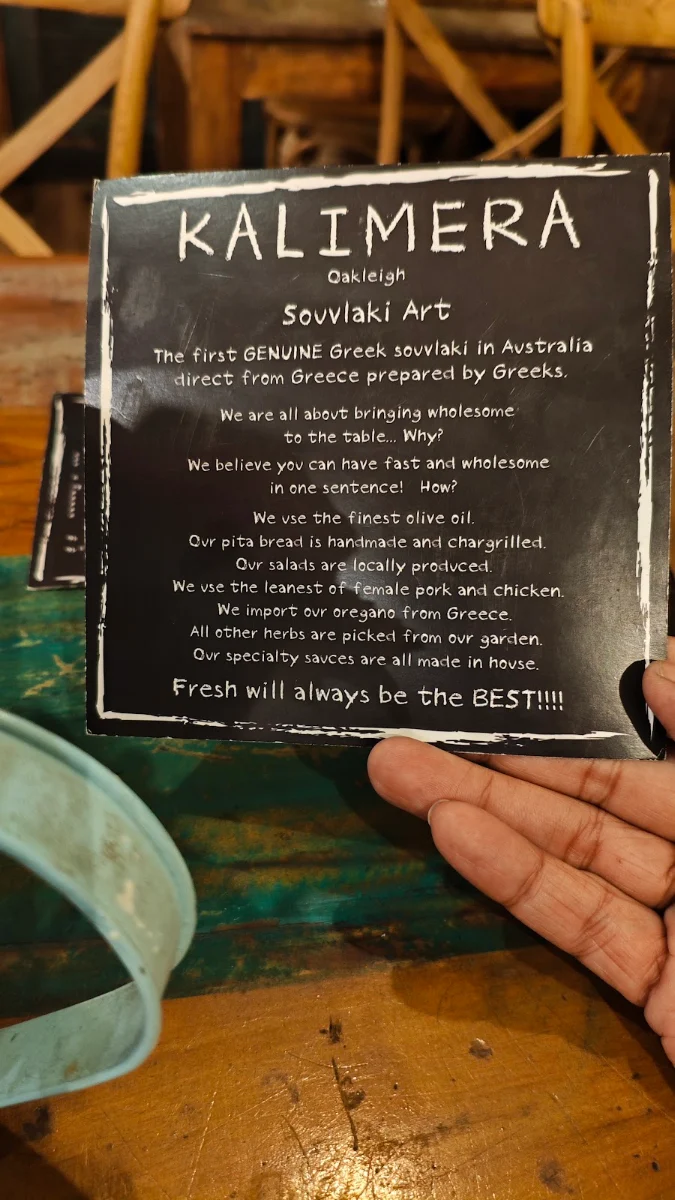 KALIMERA
Oakleigh
Souvlaki Art
The first GENUINE Greek souvlaki in Australia
direct from Greece prepared by Greeks.
We are all about bringing wholesome
to the table... Why?
We believe you can have fast and wholesome
in one sentence! How?
We use the finest olive oil.
Our pita bread is handmade and chargrilled.
Our salads are locally produced.
We use the leanest of female pork and chicken.
We import our oregano from Greece.
All other herbs are picked from our garden.
Our specialty sauces are all made in house.
Fresh will always be the BEST!!!!